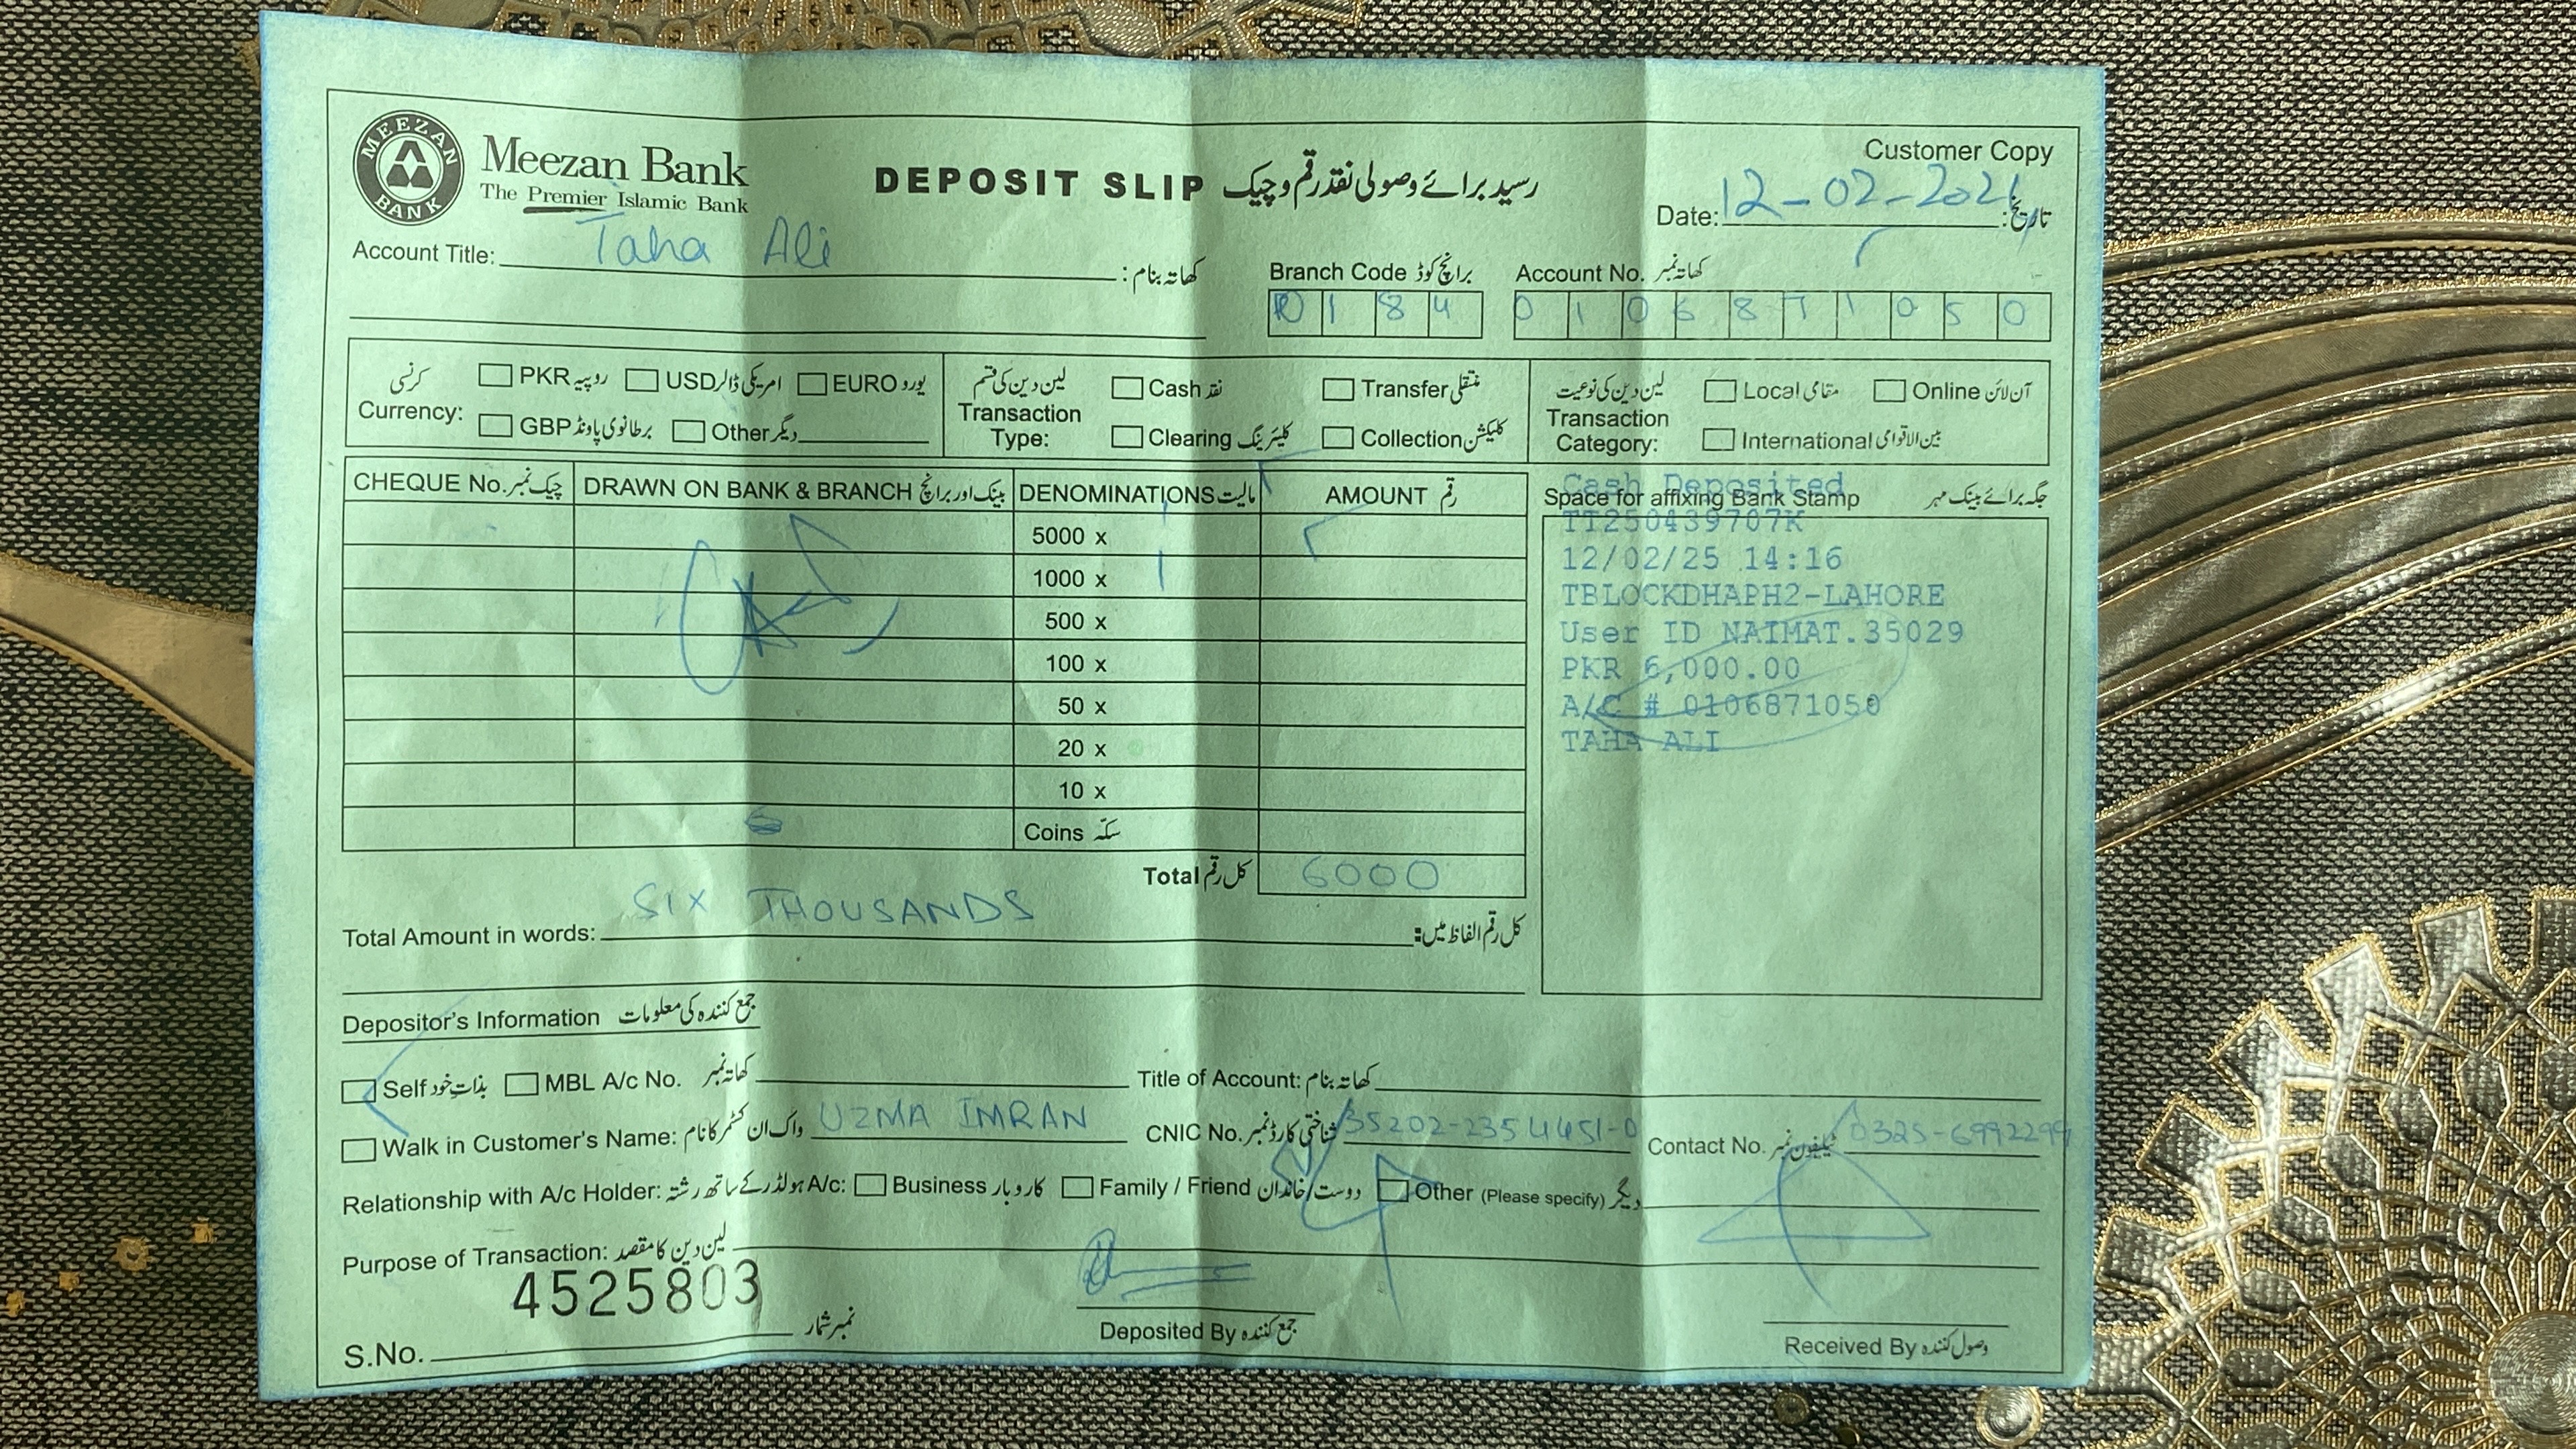 MEEZAN BANK
Meezan Bank
The Premier Islamic Bank
DEPOSIT SLIP رسید برائے وصولی نقد رقم و چیک
Customer Copy
Date: 12-02-202 تاریخ:
Account Title: Taha Ali کھاتہ بنام:
Branch Code برانچ کوڈ
0 1 8 4
Account No. کھاتہ نمبر
0 1 0 6 8 7 1 0 5 0
کرنسی Currency:
PKR روپیہ USD امریکی ڈالر EURO یورو
GBP برطانوی پاؤنڈ Other دیگر
لین دین کی قسم Transaction Type:
Cash نقد Transfer منتقلی
Clearing کلیئرنگ Collection کلیکشن
لین دین کی نوعیت Transaction Category:
Local مقامی Online آن لائن
International بین الاقوامی
CHEQUE No. چیک نمبر DRAWN ON BANK & BRANCH بینک اور برانچ DENOMINATIONS مالیت AMOUNT رقم
5000 x 1
1000 x 1
500 x
100 x
50 x
20 x
10 x
Coins سکے
Total کل رقم 6000
Space for affixing Bank Stamp جگہ برائے بینک مہر
Cash Deposited
TT250439707K
12/02/25 14:16
TBLOCKDHAPH2-LAHORE
User ID NAIMAT.35029
PKR 6,000.00
A/C # 0106871050
TAHA ALI
Total Amount in words: SIX THOUSANDS کل رقم الفاظ میں:
Depositor's Information جمع کنندہ کی معلومات
Self بذات خود MBL A/c No. کھاتہ نمبر Title of Account: کھاتہ بنام
Walk in Customer's Name: واک ان کسٹمر کا نام UZMA IMRAN CNIC No. شناختی کارڈ نمبر 35202-2354451-0 Contact No. ٹیلیفون نمبر 0325-6992299
Relationship with A/c Holder: A/c ہولڈر کے ساتھ رشتہ: Business کاروبار Family / Friend دوست/خاندان Other (Please specify) دیگر
Purpose of Transaction: لین دین کا مقصد
4525803
S.No. نمبر شمار
Deposited By جمع کنندہ
Received By وصول کنندہ